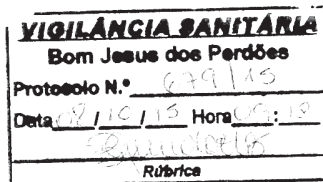 VIGILÂNCIA SANITÁRIA
Bom Jesus dos Perdões
Protocolo N.º 679/15
Data 08/10/15 Hora 09:18
Rúbrica